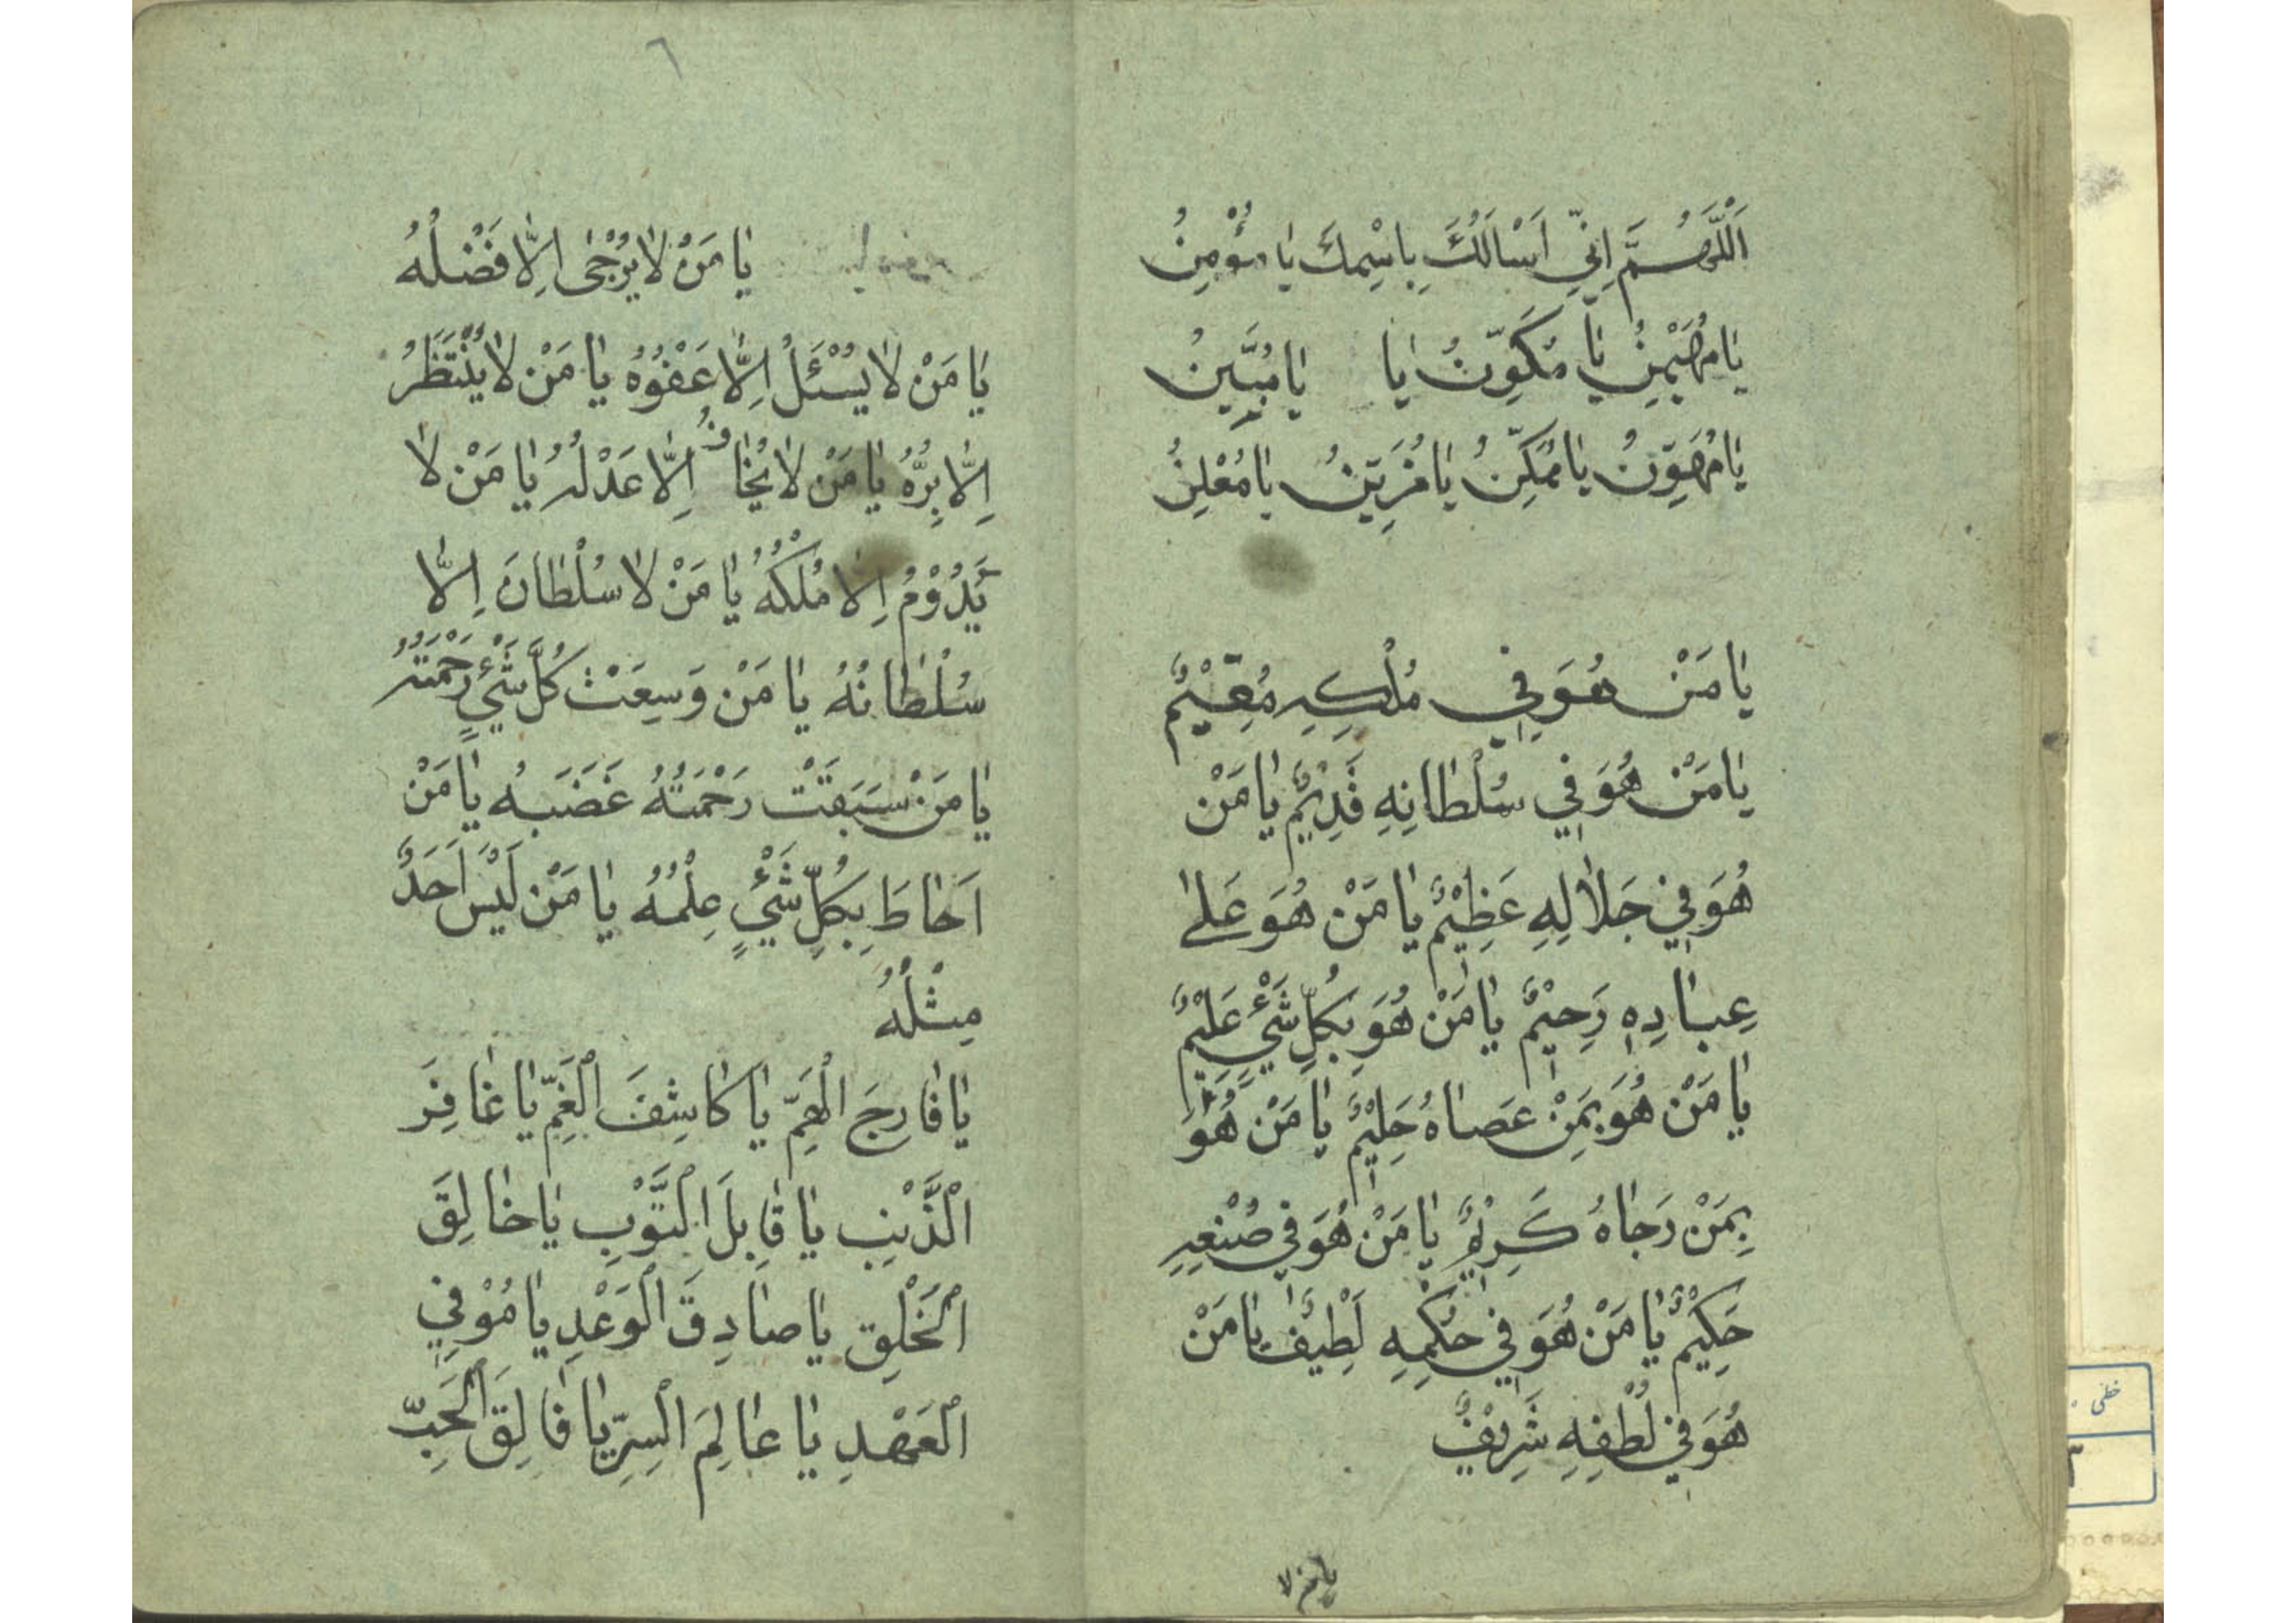 اَللّٰهُمَّ اِنّي اَسْاَلُكَ بِاسْمِكَ يٰا مُؤْمِنُ
يٰا مُهَيْمِنُ يٰا مُكَوِّنُ يٰا يٰا مُبَيِّنُ
يٰا مُهَوِّنُ يٰا مُمَكِّنُ يٰا مُزَيِّنُ يٰا مُعْلِنُ
يٰا مَنْ هُوَ في مُلْكِهِ مُقِيْمٌ
يٰا مَنْ هُوَ في سُلْطٰانِهِ قَدِيْمٌ يٰا مَنْ
هُوَ في جَلٰالِهِ عَظِيْمٌ يٰا مَنْ هُوَ عَلىٰ
عِبٰادِهِ رَحِيْمٌ يٰا مَنْ هُوَ بِكُلِّ شَيْءٍ عَلِيْمٌ
يٰا مَنْ هُوَ بِمَنْ عَصٰاهُ حَلِيْمٌ يٰا مَنْ هُوَ
بِمَنْ رَجٰاهُ كَرِيْمٌ يٰا مَنْ هُوَ في صُنْعِهِ
حَكِيْمٌ يٰا مَنْ هُوَ في حُكْمِهِ لَطِيْفٌ يٰا مَنْ
هُوَ في لُطْفِهِ شَرِيْفٌ
يٰا مَن لا
٦
يٰا مَنْ لٰا يُرْجٰى اِلّٰا فَضْلُهُ
يٰا مَنْ لٰا يُسْئَلُ اِلّٰا عَفْوُهُ يٰا مَنْ لٰا يُنْتَظَرُ
اِلّٰا بِرُّهُ يٰا مَنْ لٰا يُخٰافُ اِلّٰا عَدْلُهُ يٰا مَنْ لٰا
يَدُوْمُ اِلّٰا مُلْكُهُ يٰا مَنْ لٰا سُلْطٰانَ اِلّٰا
سُلْطٰانُهُ يٰا مَنْ وَسِعَتْ كُلَّ شَيْءٍ رَحْمَتُهُ
يٰا مَنْ سَبَقَتْ رَحْمَتُهُ غَضَبَهُ يٰا مَنْ
اَحٰاطَ بِكُلِّ شَيْءٍ عِلْمُهُ يٰا مَنْ لَيْسَ اَحَدٌ
مِثْلُهُ
يٰا فٰارِجَ الْهَمِّ يٰا كٰاشِفَ الْغَمِّ يٰا غٰافِرَ
الْذَّنْبِ يٰا قٰابِلَ الْتَّوْبِ يٰا خٰالِقَ
الْخَلْقِ يٰا صٰادِقَ الْوَعْدِ يٰا مُوْفِيَ
الْعَهْدِ يٰا عٰالِمَ الْسِرِّ يٰا فٰالِقَ الْحَبِّ
خطی